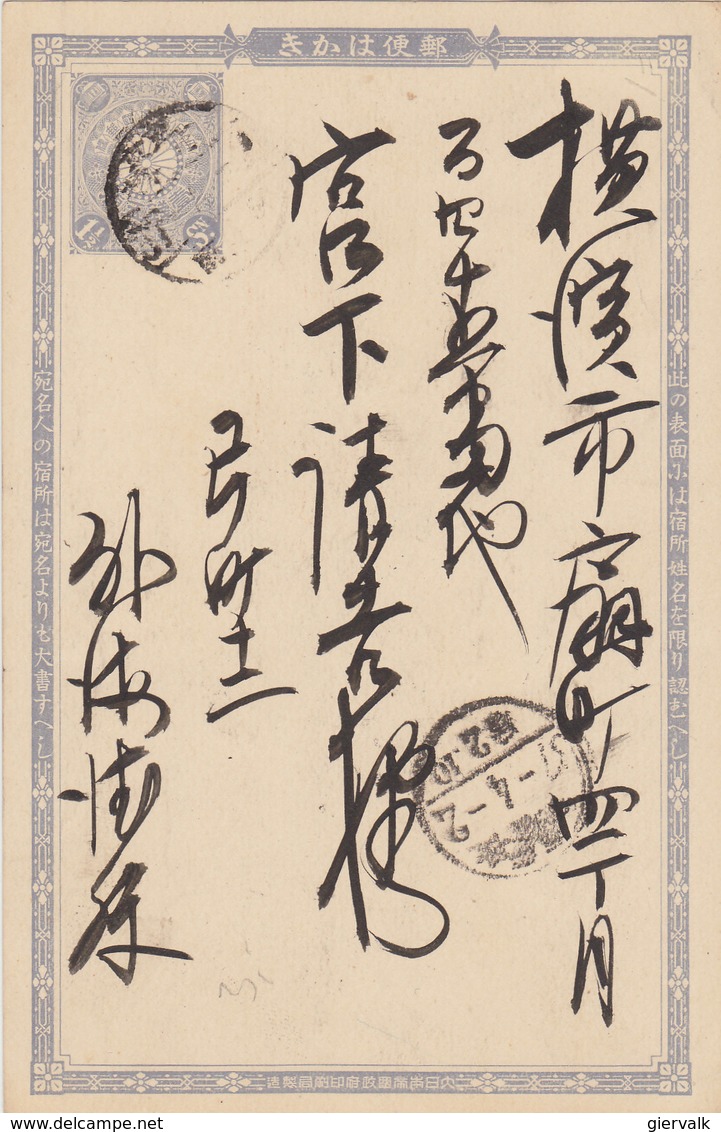 郵便はかき
此の表面には宿所姓名を限り認むへし
横濱市扇町四丁目
百四十五番地
宮下清吉様
町十二
宛名人の宿所は宛名よりも大書すへし
1½ Sn
37-4-2
大日本帝國政府印刷局製造
giervalk